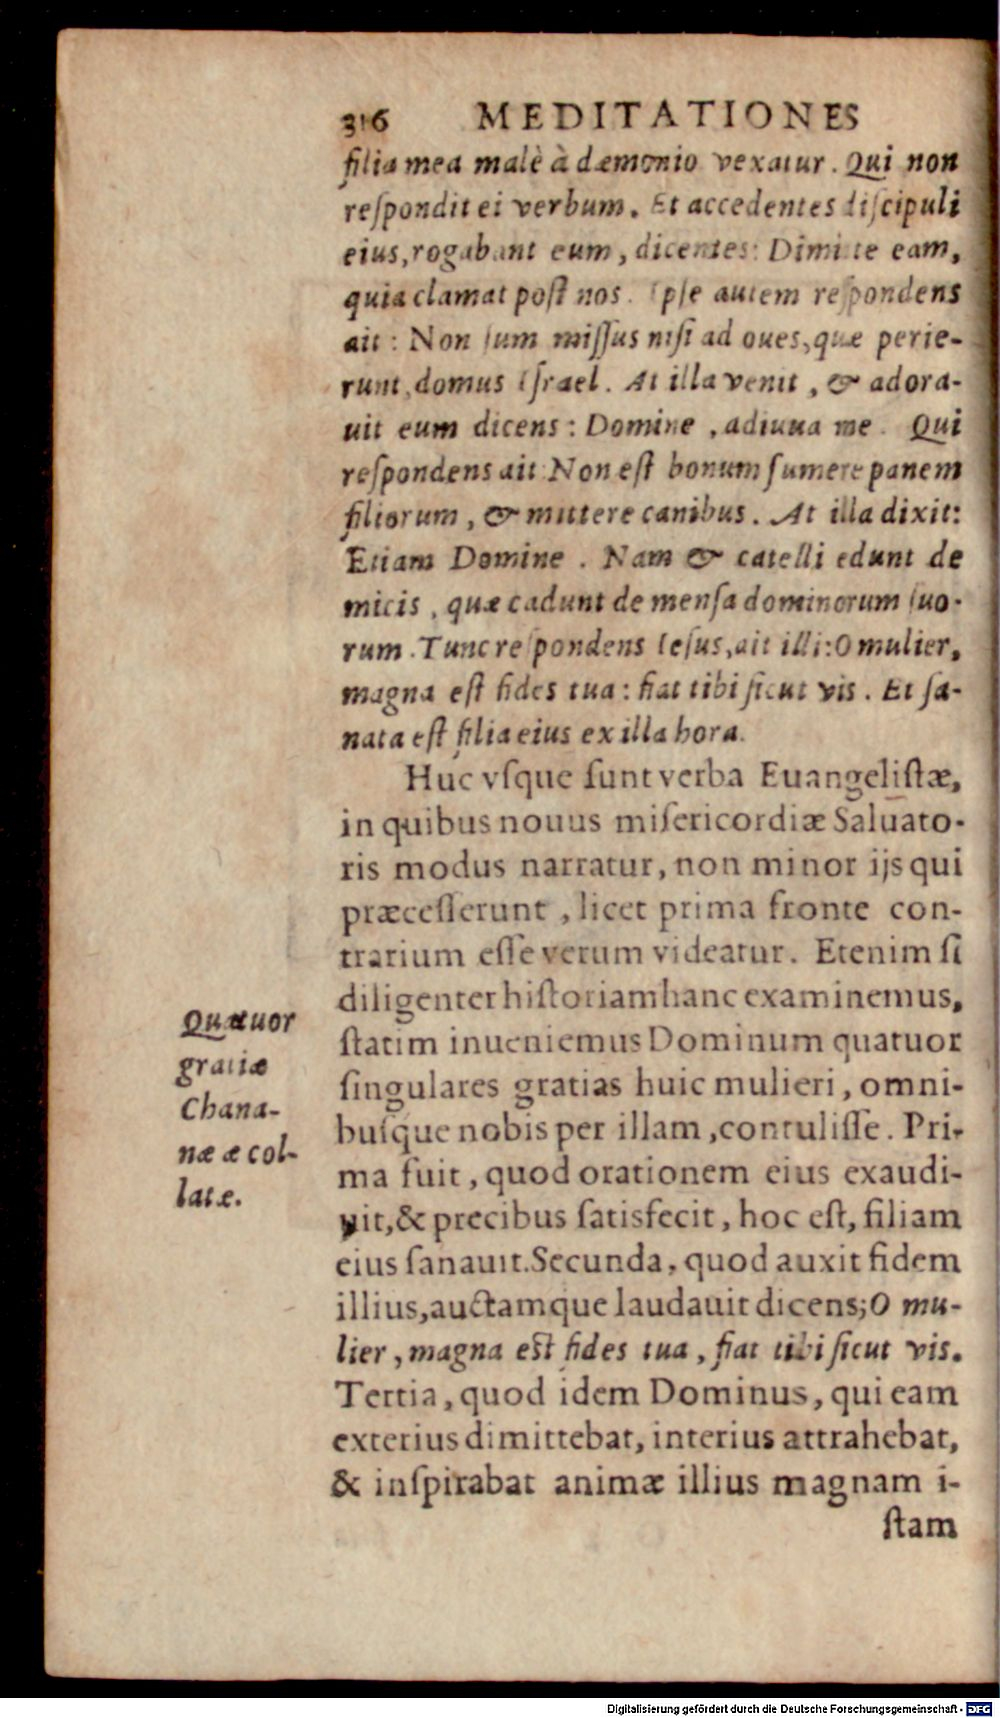 316 MEDITATIONES
filia mea malè à dæmonio vexatur. Qui non
reſpondit ei verbum. Et accedentes diſcipuli
eius, rogabant eum, dicentes: Dimitte eam,
quia clamat poſt nos. Ipſe autem reſpondens
ait: Non ſum miſſus niſi ad oues, quæ perie-
runt, domus Iſrael. At illa venit, & adora-
uit eum dicens: Domine, adiuua me. Qui
reſpondens ait: Non eſt bonum ſumere panem
filiorum, & mittere canibus. At illa dixit:
Etiam Domine. Nam & catelli edunt de
micis, quæ cadunt de menſa dominorum ſuo-
rum. Tunc reſpondens Ieſus, ait illi: O mulier,
magna eſt fides tua: fiat tibi ſicut vis. Et ſa-
nata eſt filia eius ex illa hora.
Huc vſque ſunt verba Euangeliſtæ,
in quibus nouus miſericordiæ Saluato-
ris modus narratur, non minor ijs qui
præceſſerunt, licet prima fronte con-
trarium eſſe verum videatur. Etenim ſi
diligenter hiſtoriam hanc examinemus,
ſtatim inueniemus Dominum quatuor
ſingulares gratias huic mulieri, omni-
buſque nobis per illam, contuliſſe. Pri-
ma fuit, quod orationem eius exaudi-
uit, & precibus ſatisfecit, hoc eſt, filiam
eius ſanauit. Secunda, quod auxit fidem
illius, auctamque laudauit dicens; O mu-
lier, magna eſt fides tua, fiat tibi ſicut vis.
Tertia, quod idem Dominus, qui eam
exterius dimittebat, interius attrahebat,
& inſpirabat animæ illius magnam i-
ſtam
Quatuor
gratiæ
Chana-
nææ col-
latæ.
Digitalisierung gefördert durch die Deutsche Forschungsgemeinschaft - DFG